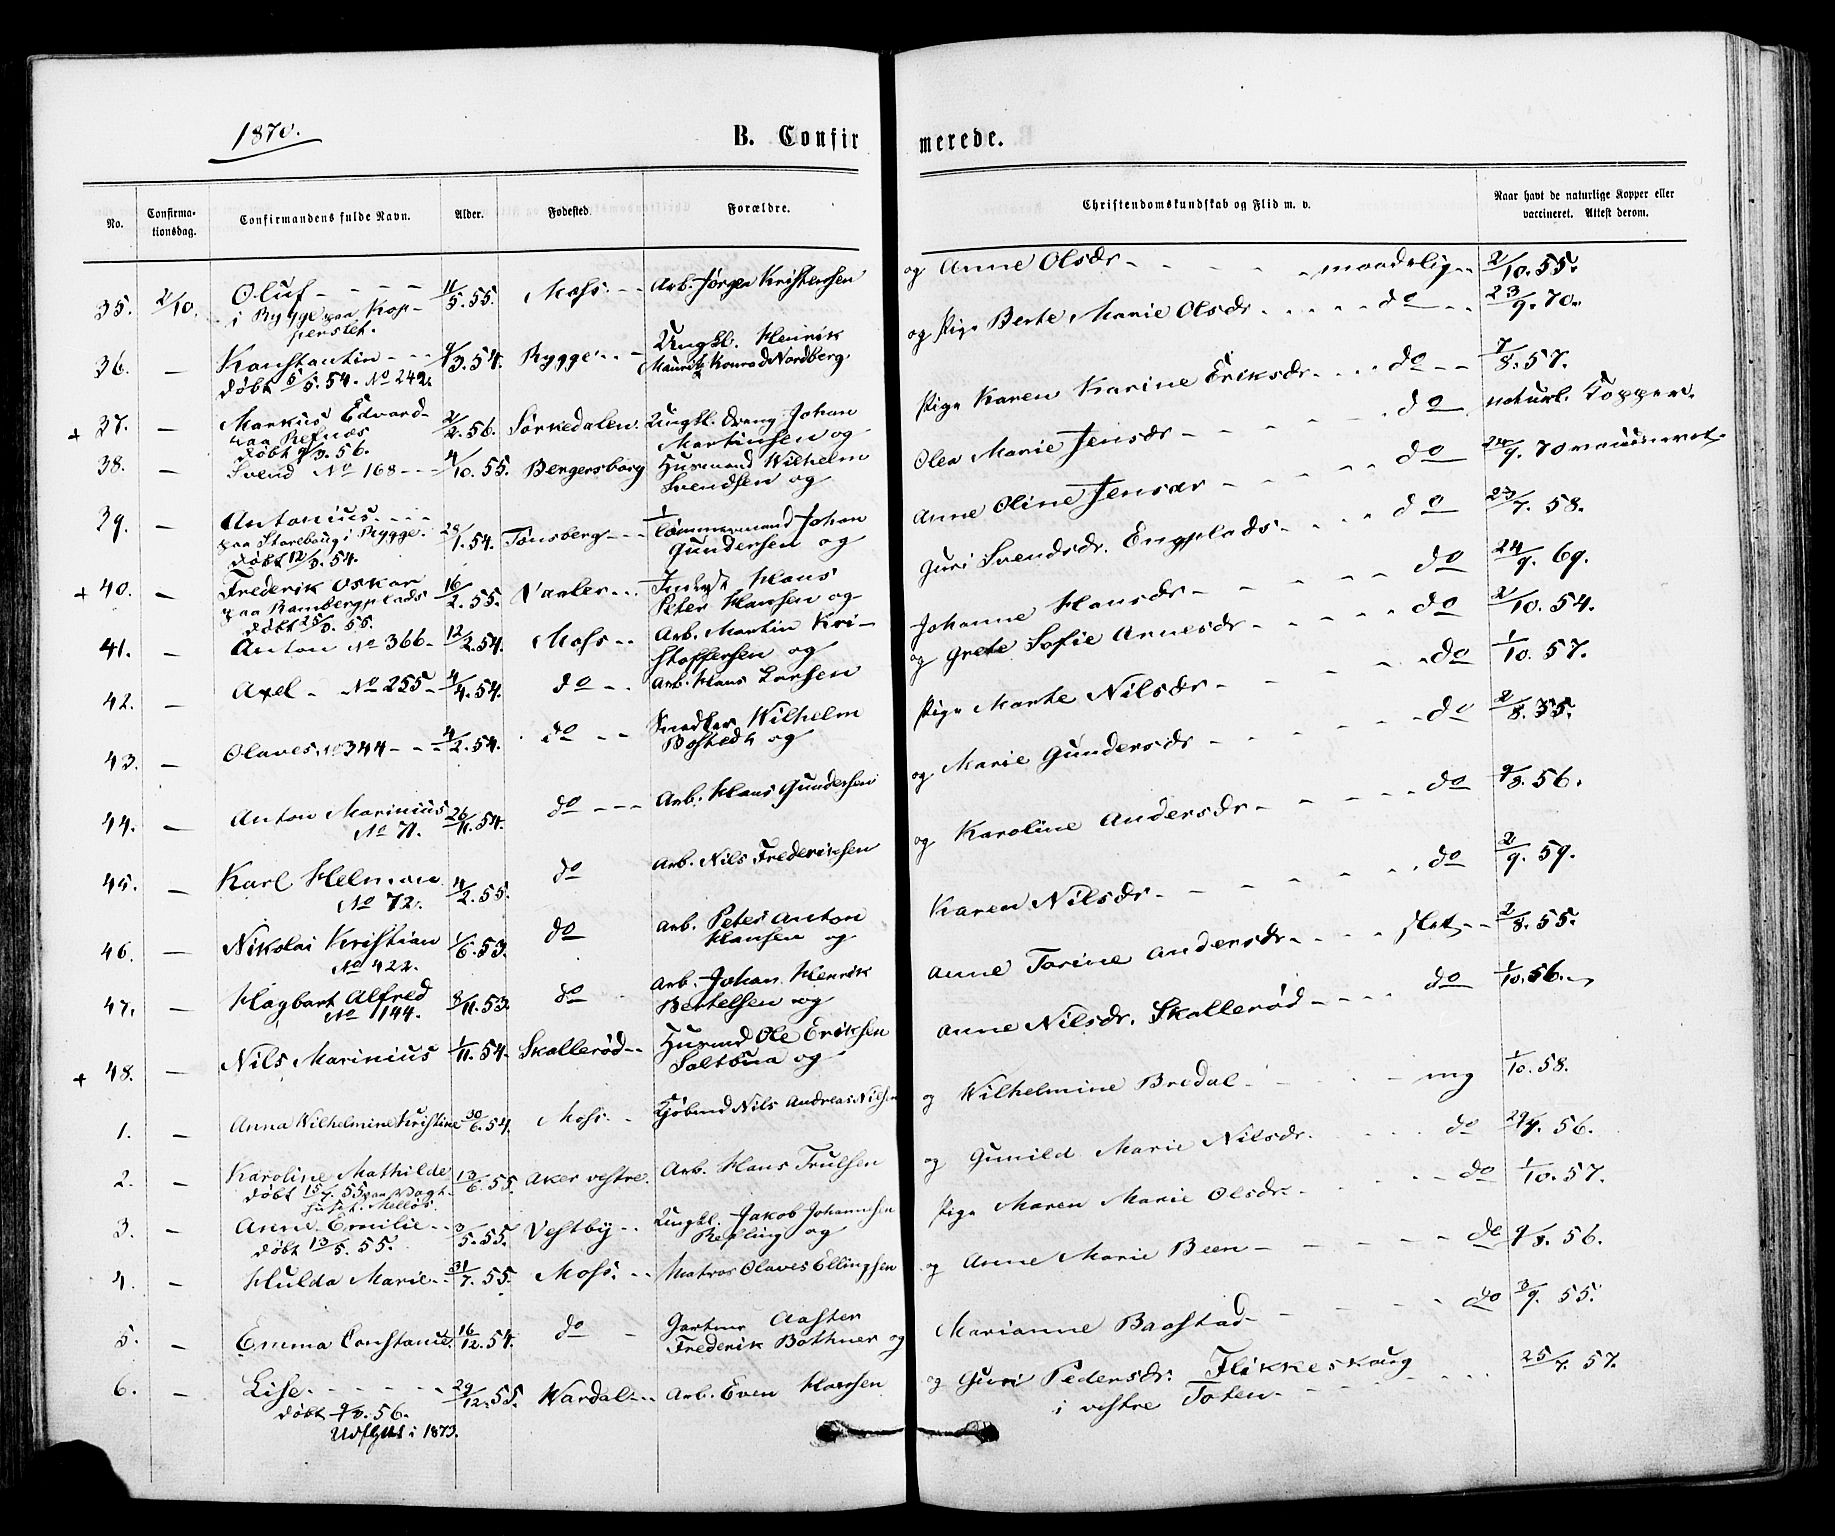 1870.
B. Confir merede.
No.
Confirma-
tionsdag.
Confirmandens fulde Navn.
Alder.
Fødested.
Forældre.
Christendomskundskab og Flid m. v.
Naar havt de naturlige Kopper eller
vaccineret. Attest derom.
35. 2/10. Oluf - - - - 11/5. 55. Moss. - - Arb. Jørgen Kristensen og Anne Olsdr - - - - - maadelig - - 2/10. 55.
i Rygge paa Kop-
perstet.
36. — Konstantin - - - 9/3. 54. Rygge - - - Ungkl. Henrik og Pige Berte Marie Olsdr - - - - do - - 23/9. 70.
døbt 5/5. 54. No 249. Mauritz Konrad Nordberg,
+ 37. — Markus Edvard - 2/2. 56. Sørkedalen. Ungkl. Dreng Johan Pige Karen Karine Eriksdr - - - - do - - 7/8. 57.
paa Refnæs Martinsen og
døbt 9/3. 56.
38. — Svend No 168 - - - 4/10. 55. Bergersborg Husmand Wilhelm Olea Marie Jensdr - - - - do naturl. Kopper.
Svendsen og
39. — Antonius - - - - 29/1. 54. Tønsberg - - - Tømmermand Johan Anne Oline Jensdr - - - - do 24/9. 70 vaccineret.
paa Storebaug i Rygge. Gundersen og
døbt 12/3. 54.
+ 40. — Frederik Oskar 16/2. 55. Vaaler - - - Inderst Hans Guri Svendsdr. Engplads - - - - do 23/7. 58.
paa Rambergplads Peter Hansen og
døbt 25/3. 55.
41. — Anton No 366 - 12/2. 54. Moss - - Arb. Martin Kri- Johanne Hansdr - - - - do 24/9. 69.
stoffersen og
42. — Axel - No 255 - 4/4. 54. do - - Arb. Hans Larsen og Grete Sofie Arnesdr - - - - do 2/10. 54.
43. — Olaves. No 344 - - 4/2. 54. do - - Smedsv Wilhelm Pige Marte Nilsdr - - - - do 1/10. 57.
Bostedt og
44. — Anton Marinius 26/11. 54. do - - - Arb. Hans Gundersen og Marie Gundersdr - - - - do 2/8. 55.
No 71.
45. — Karl Helman 4/2. 55. do Arb. Nils Frederiksen og Karoline Andersdr - - - - do 9/8. 56.
No 72.
46. — Nikolai Kristian 1/6. 53. do Arb. Peter Anton Karen Nilsdr - - - - do 2/9. 59.
No 422. Hansen og
47. — Hagbart Alfred 8/11. 53. do - Arb. Johan Henrik Anne Torine Andersdr - - - - slet - - 2/8. 55.
No 144. Bertelsen og
+ 48. — Nils Marinius 1/11. 54. Skallerød - - Husmd Ole Eriksen Anne Nilsdr. Skallerød - - - - do 1/10. 56.
Saltbua og
1. — Anna Wilhelmine Kristine 30/6. 54. Moss. - - Kjøbmd Nils Andreas Nilsen og Wilhelmine Bredal - - - - mg 1/10. 58.
2. — Karoline Mathilde 13/6. 55. Aker vestre. Arb. Hans Trulsen og Gunild Marie Nilsdr. - - - - do 29/7. 56.
døbt 15/7. 55 paa Vagt-
huset. Melløs.
3. — Anne Emilie - - 3/5. 55. Vestby - - Ungkl. Jakob Johannesen Pige Maren Marie Olsdr - - - - do 1/10. 57.
døbt 13/5. 55. Refling og
4. — Hulda Marie - - 31/7. 55. Moss. - - Matros Olaves Ellingsen og Anne Marie Been - - - - do 9/8. 56.
5. — Emma Constance. 16/12. 54. do - Gartner Aaster Marianne Baastad - - - - do 3/9. 55.
Frederik Bothner og
6. — Lise - - - - - 29/12. 55. Wardal - - - Arb. Even Hansen og Guri Pedersdr. Flikkeshaug - - - - 25/7. 57.
døbt 9/3. 56. i vestre Toten - - -
Udflyttet i 1873.